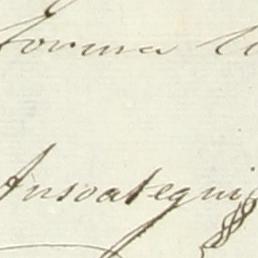 forma
Ansoategui